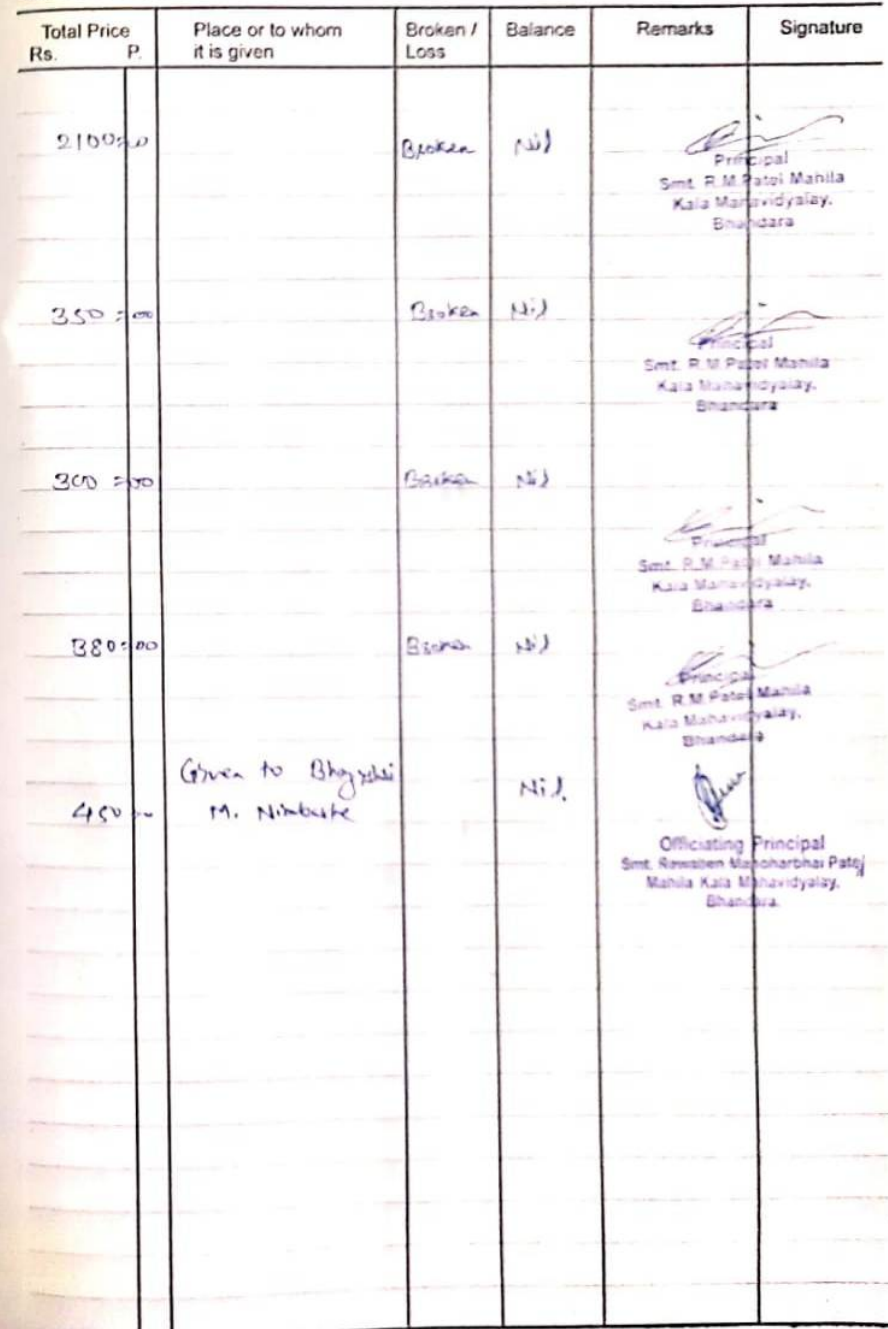 Total Price Place or to whom Broken / Balance Remarks Signature
Rs. P. it is given Loss
2100=00 Broken Nil
Principal
Smt. R.M.Patel Mahila
Kala Mahavidyalay,
Bhandara
350=00 Broken Nil
Principal
Smt. R.M.Patel Mahila
Kala Mahavidyalay,
Bhandara
300=00 Broken Nil
Principal
Smt. R.M.Patel Mahila
Kala Mahavidyalay,
Bhandara
380=00 Broken Nil
Principal
Smt. R.M.Patel Mahila
Kala Mahavidyalay,
Bhandara
Given to
450 M. Nil.
Officiating Principal
Smt. Rewaben Manoharbhai Patel
Mahila Kala Mahavidyalay,
Bhandara.